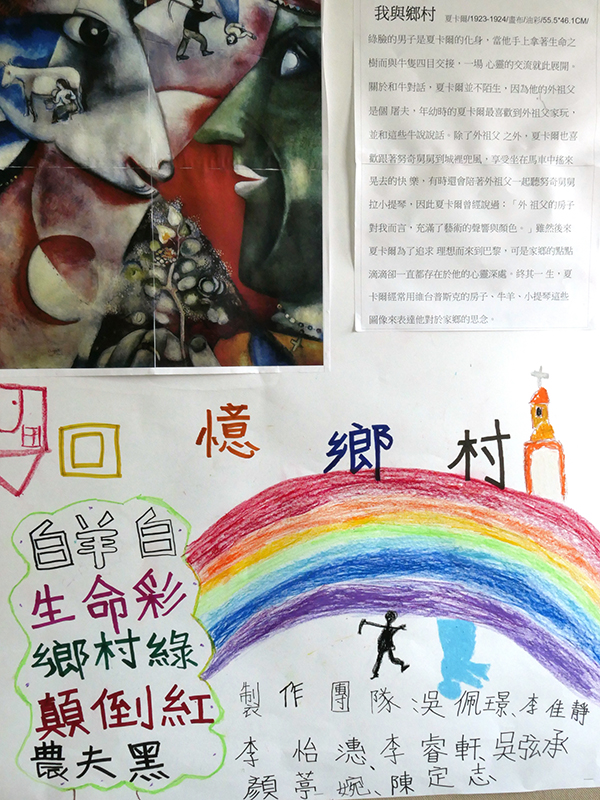 我與鄉村 夏卡爾/1923-1924/畫布/油彩/55.5*46.1CM/
綠臉的男子是夏卡爾的化身，當他手上拿著生命之
樹而與牛隻四目交接，一場 心靈的交流就此展開。
關於和牛對話，夏卡爾並不陌生，因為他的外祖父
是個 屠夫，年幼時的夏卡爾最喜歡到外祖父家玩，
並和這些牛說說話。除了外祖父 之外，夏卡爾也喜
歡跟著努奇舅舅到城裡兜風，享受坐在馬車中搖來
晃去的快 樂，有時還會陪著外祖父一起聽努奇舅舅
拉小提琴，因此夏卡爾曾經說過：「外 祖父的房子
對我而言，充滿了藝術的聲響與顏色。」雖然後來
夏卡爾為了追求 理想而來到巴黎，可是家鄉的點點
滴滴卻一直都存在於他的心靈深處。終其一 生，夏
卡爾經常用維台普斯克的房子、牛羊、小提琴這些
圖像來表達他對於家鄉的思念。
回憶鄉村
白羊白
生命彩
鄉村綠
顛倒紅
農夫黑
製作團隊 吳佩璟、李佳靜
李怡漶、李睿軒、吳弦承
顏葶婉、陳定志